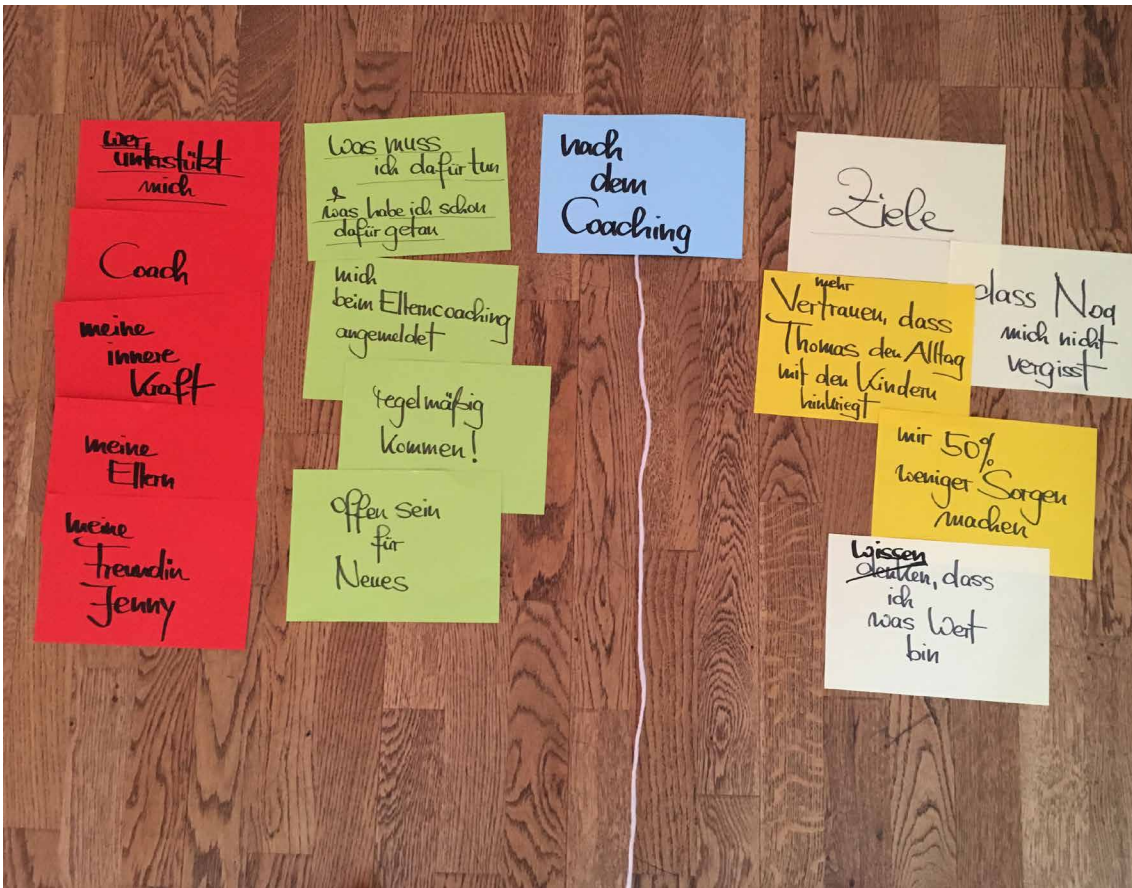 wer
unterstützt
mich
Coach
meine
innere
Kraft
meine
Eltern
meine
Freundin
Jenny
Was muss
ich dafür tun
& was habe ich schon
dafür getan
mich
beim Elterncoaching
angemeldet
regelmäßig
kommen!
offen sein
für
Neues
nach
dem
Coaching
Ziele
dass Noa
mich nicht
vergisst
mehr
Vertrauen, dass
Thomas den Alltag
mit den Kindern
hinkriegt
mir 50%
weniger Sorgen
machen
wissen
denken, dass
ich
was Wert
bin